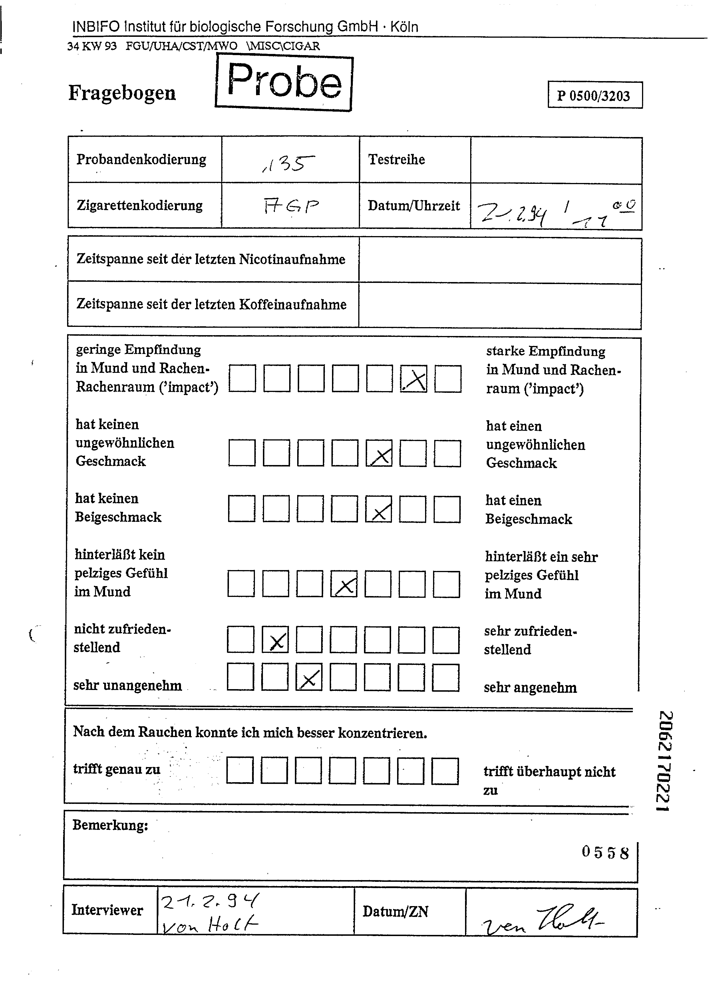 INBIFO Institut für biologische Forschung GmbH · Köln
34 KW 93 FGU/UHA/CST/MWO \MISC\CIGAR
Fragebogen
Probe
P 0500/3203
Probandenkodierung 135 Testreihe
Zigarettenkodierung AGP Datum/Uhrzeit 21.2.94 / 11 00
Zeitspanne seit der letzten Nicotinaufnahme
Zeitspanne seit der letzten Koffeinaufnahme
geringe Empfindung
in Mund und Rachen-
Rachenraum ('impact')
starke Empfindung
in Mund und Rachen-
raum ('impact')
hat keinen
ungewöhnlichen
Geschmack
hat einen
ungewöhnlichen
Geschmack
hat keinen
Beigeschmack
hat einen
Beigeschmack
hinterläßt kein
pelziges Gefühl
im Mund
hinterläßt ein sehr
pelziges Gefühl
im Mund
nicht zufrieden-
stellend
sehr zufrieden-
stellend
sehr unangenehm
sehr angenehm
Nach dem Rauchen konnte ich mich besser konzentrieren.
trifft genau zu
trifft überhaupt nicht
zu
2062170221
Bemerkung:
0558
Interviewer
21.2.94
von Holt
Datum/ZN
von Holt